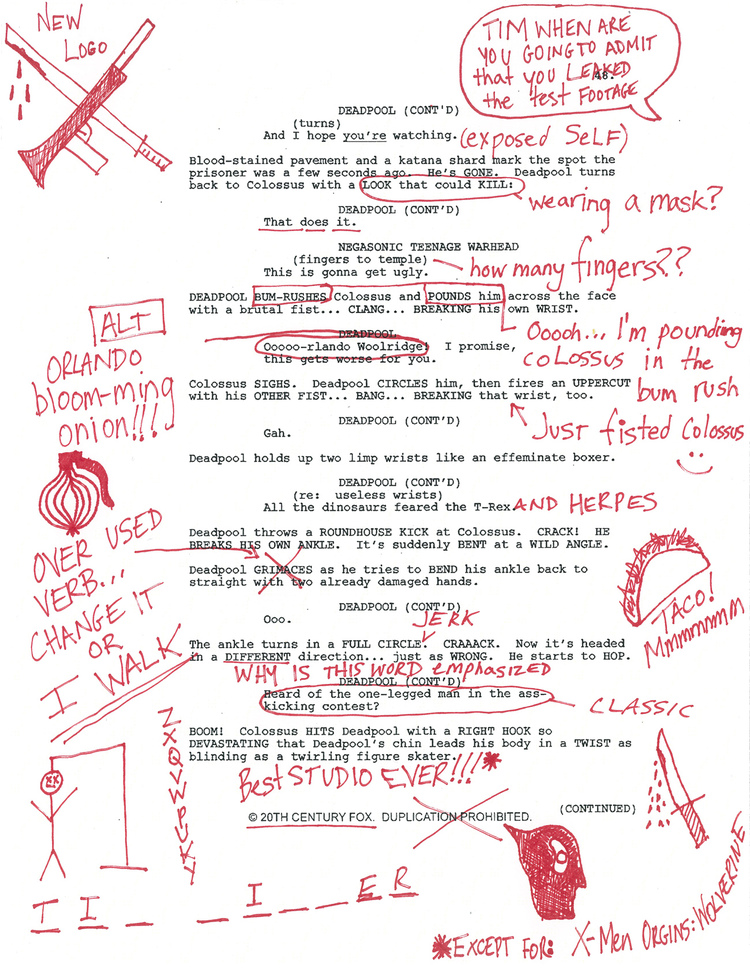 NEW
LOGO
TIM WHEN ARE
YOU GOING TO ADMIT
that you LEAKED
the test FOOTAGE
48.
DEADPOOL (CONT'D)
(turns)
And I hope you're watching.
(exposed SeLF)
Blood-stained pavement and a katana shard mark the spot the
prisoner was a few seconds ago. He's GONE. Deadpool turns
back to Colossus with a LOOK that could KILL:
wearing a mask?
DEADPOOL (CONT'D)
That does it.
NEGASONIC TEENAGE WARHEAD
(fingers to temple)
This is gonna get ugly.
how many fingers??
DEADPOOL BUM-RUSHES Colossus and POUNDS him across the face
with a brutal fist... CLANG... BREAKING his own WRIST.
ALT
ORLANDO
bloom-ming
onion!!!
DEADPOOL
Ooooo-rlando Woolridge! I promise,
this gets worse for you.
Ooooh... I'm pounding
coLossus in the
bum rush
Colossus SIGHS. Deadpool CIRCLES him, then fires an UPPERCUT
with his OTHER FIST... BANG... BREAKING that wrist, too.
Just fisted Colossus
DEADPOOL (CONT'D)
Gah.
Deadpool holds up two limp wrists like an effeminate boxer.
DEADPOOL (CONT'D)
(re: useless wrists)
All the dinosaurs feared the T-Rex.
AND HERPES
OVER USED
VERB...
CHANGE IT
OR
I WALK
Deadpool throws a ROUNDHOUSE KICK at Colossus. CRACK! HE
BREAKS HIS OWN ANKLE. It's suddenly BENT at a WILD ANGLE.
Deadpool GRIMACES as he tries to BEND his ankle back to
straight with two already damaged hands.
TACO!
Mmmmmmm
DEADPOOL (CONT'D)
Ooo.
JERK
The ankle turns in a FULL CIRCLE. CRAAACK. Now it's headed
in a DIFFERENT direction... just as WRONG. He starts to HOP.
WHY IS THIS WORD EMPHASIZED
DEADPOOL (CONT'D)
Heard of the one-legged man in the ass-
kicking contest?
CLASSIC
BOOM! Colossus HITS Deadpool with a RIGHT HOOK so
DEVASTATING that Deadpool's chin leads his body in a TWIST as
blinding as a twirling figure skater.
Best STUDIO EVER!!!*
(CONTINUED)
© 20TH CENTURY FOX. DUPLICATION PROHIBITED.
T I _ _ _ I _ _ E R
*EXCEPT FOR: X-Men ORGINS: WOLVERINE